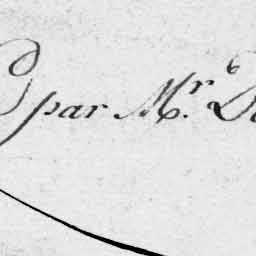 par Mr.